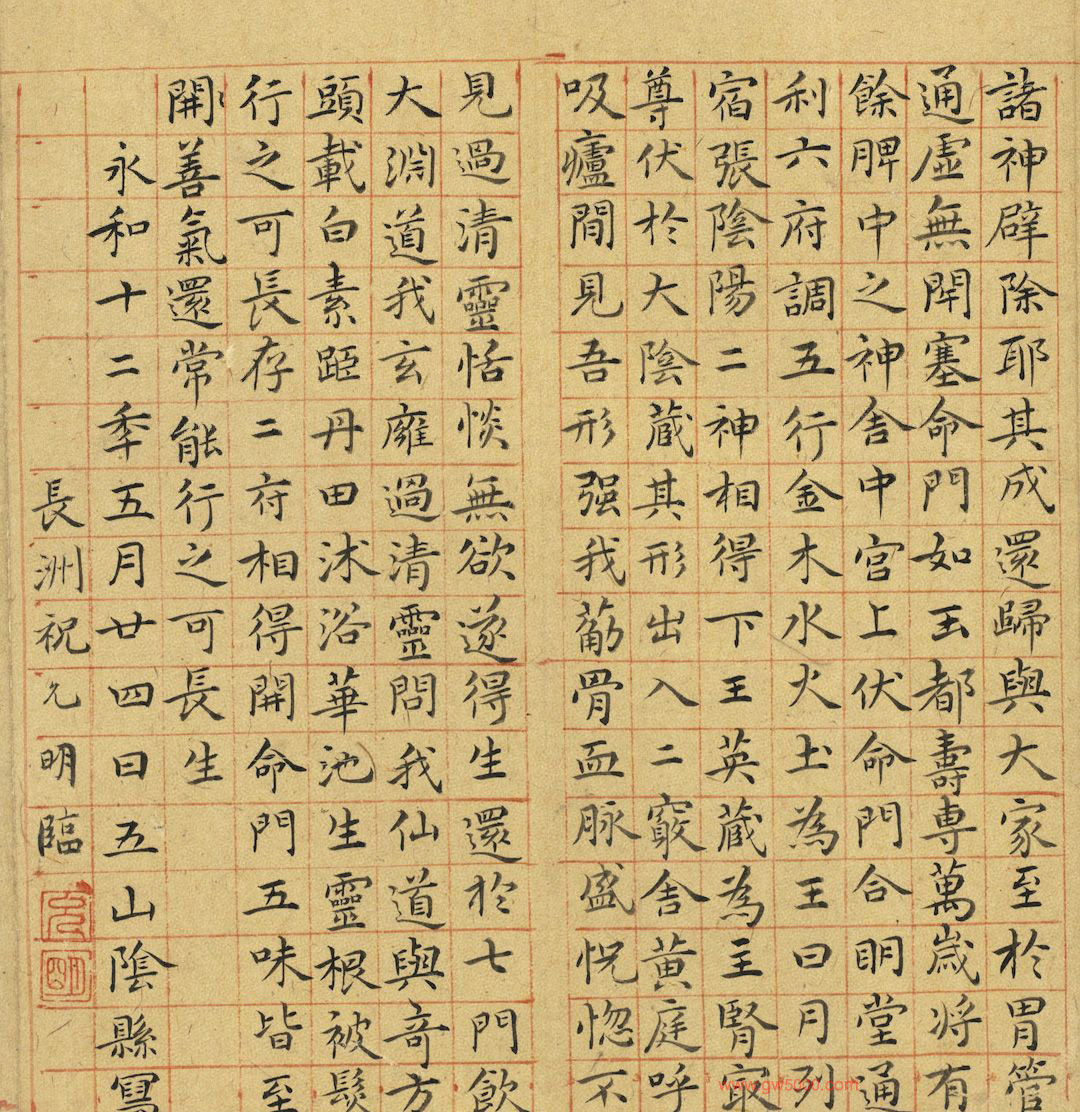 諸神辟除耶其成還歸與大家至於胃管
通虛無閇塞命門如玉都壽專萬歲將有
餘脾中之神舍中宮上伏命門合明堂通
利六府調五行金木水火土為王日月列
宿張陰陽二神相得下王英藏為主腎冣
尊伏於大陰藏其形出入二竅舍黃庭呼
吸廬間見吾形强我葋骨血脉盛恍惚不
見過清靈恬惔無欲遂得生還於七門飲
大淵道我玄廱過清靈問我仙道與奇方
頭載白素距丹田沐浴華池生靈根被髮
行之可長存二府相得開命門五味皆至
開善氣還常能行之可長生
永和十二年五月廿四日五山陰縣寫
長洲祝允明臨
允明
www.gw5000.com